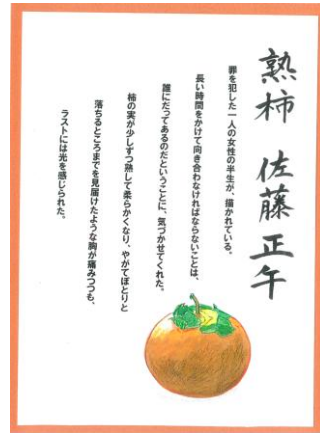 熟柿 佐藤正午
罪を犯した一人の女性の半生が、描かれている。
長い時間をかけて向き合わなければならないことは、
誰にだってあるのだということに、気づかせてくれた。
柿の実が少しずつ熟して柔らかくなり、やがてぽとりと
落ちるところまでを見届けたような胸が痛みつつも、
ラストには光を感じられた。